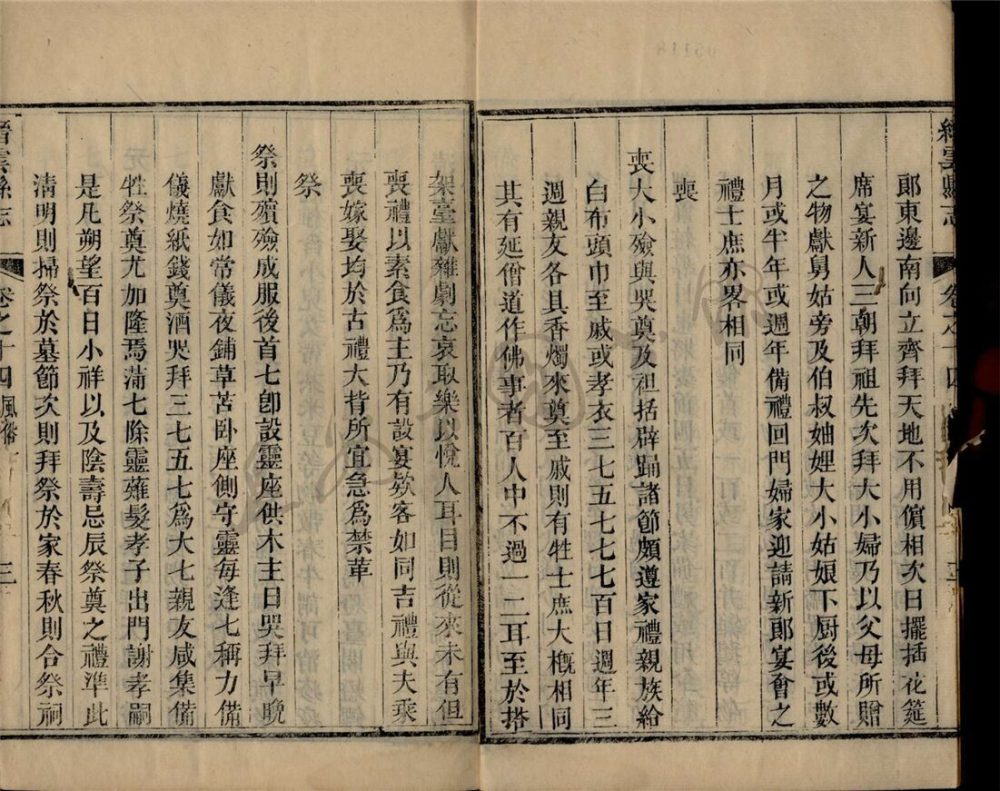 縉雲縣志
卷之十四
郞東邊南向立齊拜天地不用儐相次日擺插花筵
席宴新人三朝拜祖先次拜大小婦乃以父母所贈
之物獻舅姑旁及伯叔妯娌大小姑娘下厨後或數
月或半年或週年備禮回門婦家迎請新郞宴會之
禮士庶亦畧相同
喪
喪大小殮與哭奠及袒括辟踊諸節頗遵家禮親族給
白布頭巾至戚或孝衣三七五七七七百日週年三
週親友各具香燭來奠至戚則有牲士庶大槪相同
其有延僧道作佛事者百人中不過一二耳至於搭
架臺獻雜劇忘哀取樂以悅人耳目則從來未有但
喪禮以素食爲主乃有設宴欵客如同吉禮與夫乘
喪嫁娶均於古禮大背所宜急爲禁革
祭
祭則殯殮成服後首七卽設靈座供木主日哭拜早晚
獻食如常儀夜鋪草苫卧座側守靈每逢七稱力備
儀燒紙錢奠酒哭拜三七五七爲大七親友咸集備
牲祭奠尤加隆焉滿七除靈薙髮孝子出門謝孝嗣
是凡朔望百日小祥以及陰壽忌辰祭奠之禮準此
清明則掃祭於墓節次則拜祭於家春秋則合祭祠
縉雲縣志
卷之十四
風俗
三